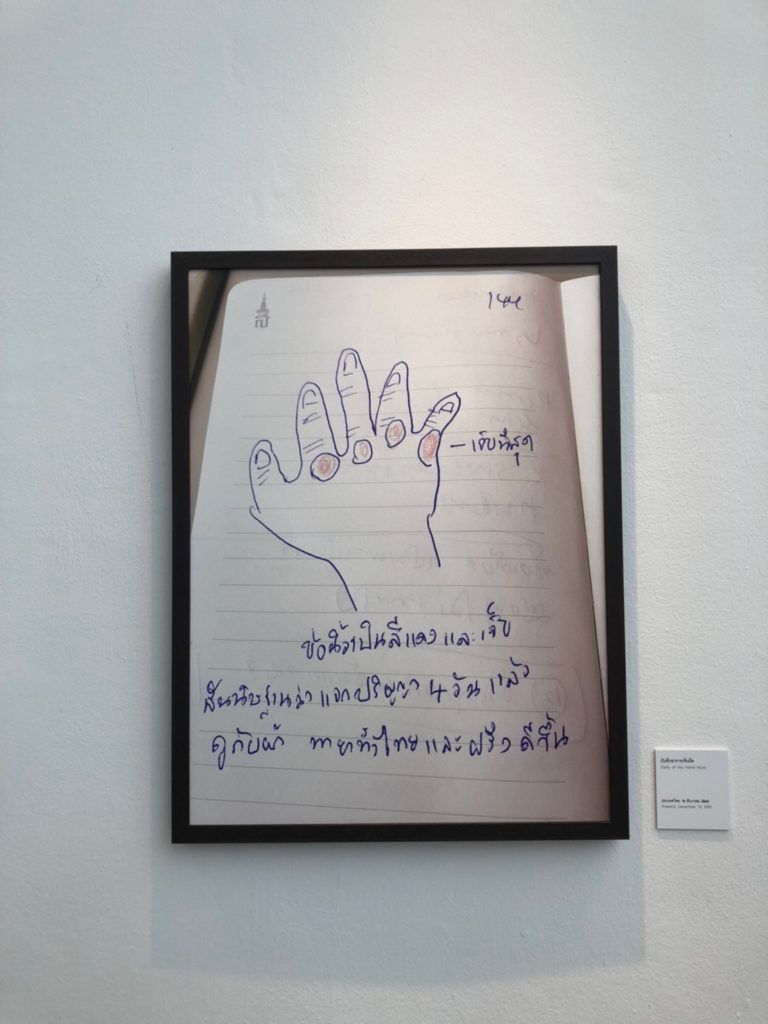 – เจ็บที่สุด
ข้อนิ้วเป็นสีแดงและเจ็บ
สันนิษฐานว่าแจกปริญญา 4 วันแล้ว
ถูกับผ้า ทายาทั้งไทยและฝรั่ง ดีขึ้น
บันทึกอาการเจ็บมือ